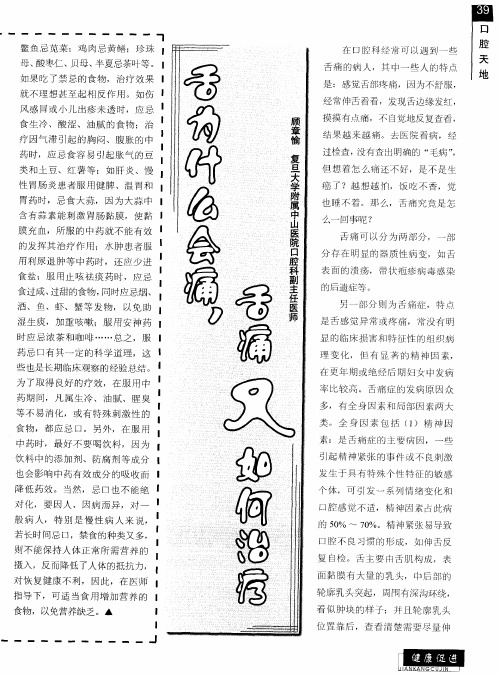 39
口
腔
天
地
鳖鱼忌苋菜；鸡肉忌黄鳝；珍珠
母、酸枣仁、贝母、半夏忌茶叶等。
如果吃了禁忌的食物，治疗效果
就不理想甚至起相反作用。如伤
风感冒或小儿出疹未透时，应忌
食生冷、酸涩、油腻的食物；治
疗因气滞引起的胸闷、腹胀的中
药时，应忌食容易引起胀气的豆
类和土豆、红薯等；如肝炎、慢
性胃肠炎患者服用健脾、温胃和
胃药时，忌食大蒜，因为大蒜中
含有蒜素能刺激胃肠黏膜，使黏
膜充血，所服的中药就不能有效
的发挥其治疗作用；水肿患者服
用利尿退肿等中药时，还应少进
食盐；服用止咳祛痰药时，应忌
食过咸、过甜的食物，同时应忌烟、
酒、鱼、虾、蟹等发物，以免助
湿生痰，加重咳嗽；服用安神药
时应忌浓茶和咖啡……总之，服
药忌口有其一定的科学道理，这
些也是长期临床观察的经验总结。
为了取得良好的疗效，在服用中
药期间，凡属生冷、油腻、腥臭
等不易消化，或有特殊刺激性的
食物，都应忌口。另外，在服用
中药时，最好不要喝饮料，因为
饮料中的添加剂、防腐剂等成分
也会影响中药有效成分的吸收而
降低药效。当然，忌口也不能绝
对化，要因人，因病而异，对一
般病人，特别是慢性病人来说，
若长时间忌口，禁食的种类又多，
则不能保持人体正常所需营养的
摄入，反而降低了人体的抵抗力，
对恢复健康不利，因此，在医师
指导下，可适当食用增加营养的
食物，以免营养缺乏。▲
舌为什么会痛，
舌痛又如何治疗
顾章愉 复旦大学附属中山医院口腔科副主任医师
在口腔科经常可以遇到一些
舌痛的病人，其中一些人的特点
是：感觉舌部疼痛，因为不舒服，
经常伸舌看看，发现舌边缘发红，
摸摸有点痛，不自觉地反复查看，
结果越来越痛。去医院看病，经
过检查，没有查出明确的“毛病”，
但想着怎么痛还不好，是不是生
癌了？越想越怕，饭吃不香，觉
也睡不着。那么，舌痛究竟是怎
么一回事呢？
舌痛可以分为两部分，一部
分存在明显的器质性病变，如舌
表面的溃疡，带状疱疹病毒感染
的后遗症等。
另一部分则为舌痛症，特点
是舌感觉异常或疼痛，常没有明
显的临床损害和特征性的组织病
理变化，但有显著的精神因素，
在更年期或绝经后期妇女中发病
率比较高。舌痛症的发病原因众
多，有全身因素和局部因素两大
类。全身因素包括（1）精神因
素：是舌痛症的主要病因，一些
引起精神紧张的事件或不良刺激
发生于具有特殊个性特征的敏感
个体，可引发一系列情绪变化和
口腔感觉不适，精神因素占此病
的 50% ～ 70%。精神紧张易导致
口腔不良习惯的形成，如伸舌反
复自检。舌主要由舌肌构成，表
面黏膜有大量的乳头，中后部的
轮廓乳头突起，周围有深沟环绕，
看似肿块的样子；并且轮廓乳头
位置靠后，查看清楚需要尽量伸
健康促进
JIANKANGCUJIN